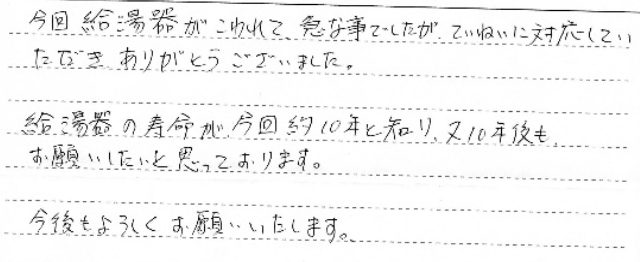 今回給湯器がこわれて、急な事でしたが、ていねいに対応してい
ただきありがとうございました。
給湯器の寿命が、今回約10年と知り、又10年後も、
お願いしたいと思っております。
今後もよろしくお願いいたします。